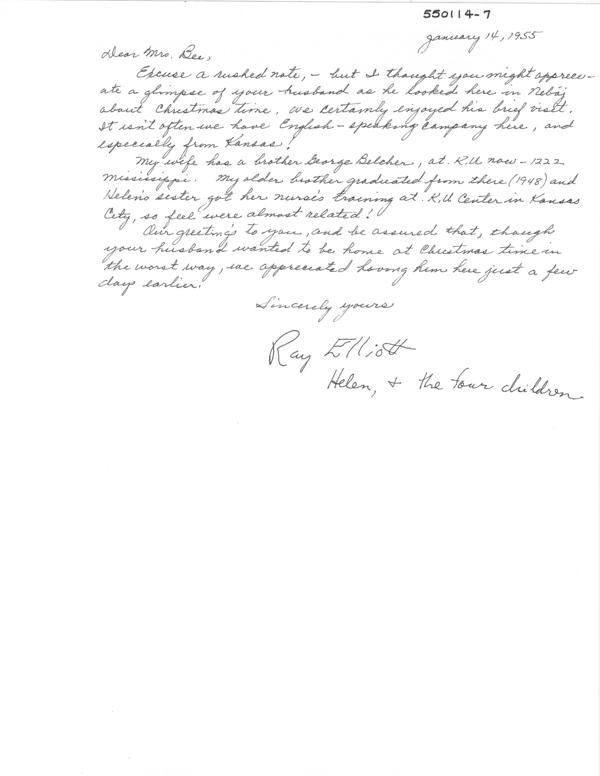 550114-7
January 14, 1955
Dear Mrs. Bee,
Excuse a rushed note, - but I thought you might appreci-
ate a glimpse of your husband as he looked here in Nebaj
about Christmas time. We certainly enjoyed his brief visit.
It isn't often we have English-speaking company here, and
especially from Kansas!
My wife has a brother George Belcher, at K.U now - 1222
Mississippi. My older brother graduated from there (1948) and
Helen's sister got her nurse's training at K.U Center in Kansas
City, so feel we're almost related!
Our greetings to you, and be assured that, though
your husband wanted to be home at Christmas time in
the worst way, we appreciated having him here just a few
days earlier.
Sincerely yours
Ray Elliott
Helen, & the four children